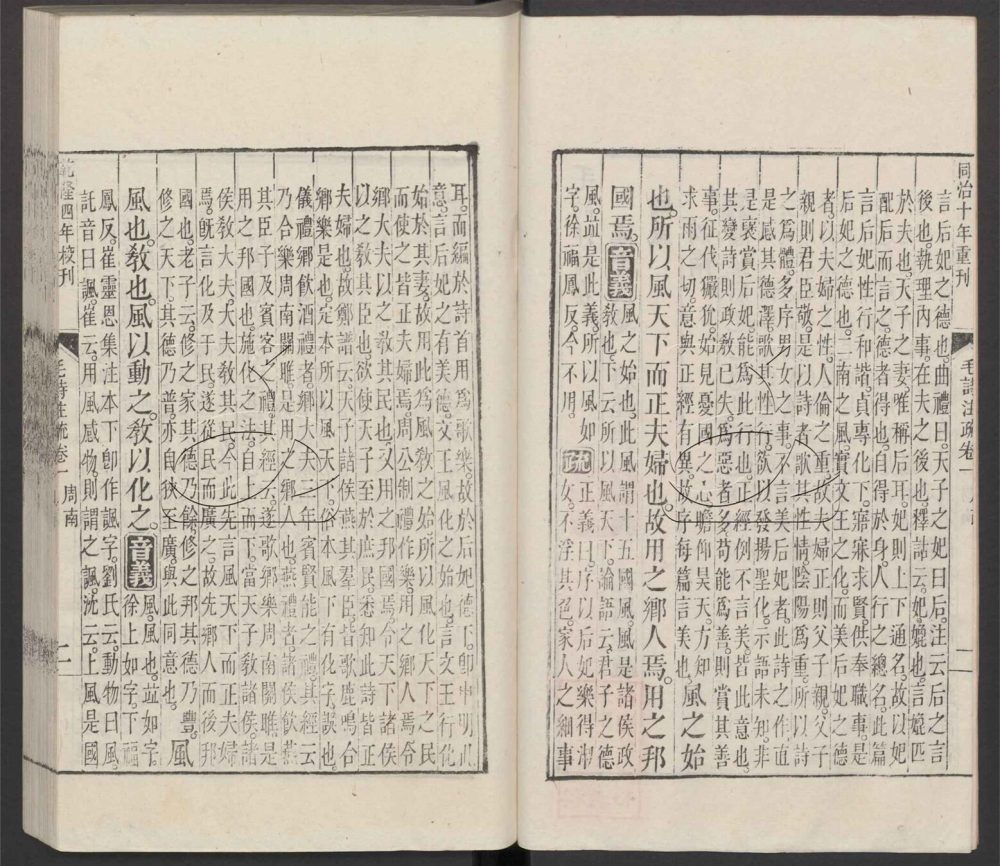 同治十年重刊
毛詩注疏卷一
言后妃之德也。曲禮曰。天子之妃曰后。注云后之言
後也。執理內事。在夫之後也。釋詁云。妃媲也。言媲匹
於夫也。天子之妻唯稱后耳。妃則上下通名。故以妃
配后而言之。德者得也。自得於身。人行之總名。此篇
言后妃性行和諧貞專化下。寤寐求賢。供奉職事。是
后妃之德也。二南之風實文王之化。而美后妃之德
者。以夫婦之性。人倫之重。故夫婦正則父子親。父子
親則君臣敬。是以詩者歌其性情。陰陽爲重。所以詩
之爲體。多序男女之事。不言美后妃者。此詩之作直
是感其德澤。歌其性行。欲以發揚聖化。示語未知。非
是褒賞后妃能爲此行也。正經例不言美。皆此意也。
其變詩則政敎已失。爲惡者多。苟能爲善則賞其善
事。征伐玁狁。始見憂國之心。瞻仰昊天。方知
求雨之切。意與正經有異。故序每篇言美也。風之始
也。所以風天下而正夫婦也。故用之鄉人焉。用之邦
國焉。音義風之始也。此風謂十五國風。風是諸侯政
敎也。下云所以風天下。論語云。君子之德
風。並是此義。所以風如
字。徐福鳳反。今不用。疏正義曰。序以后妃樂得淑
女。不淫其色。家人之細事
耳。而編於詩首用爲歌樂。故於后妃德下。卽申明此
意。言后妃之有美德。文王風化之始也。言文王行化
始於其妻。故用此爲風敎之始。所以風化天下之民
而使之皆正夫婦焉。周公制禮作樂。用之鄉人焉。令
鄉大夫以之敎其民也。又用之邦國焉。令天下諸侯
以之敎其臣也。欲使天子至於庶民。悉知此詩皆正
夫婦也。故鄭譜云。天子諸侯燕其羣臣。皆歌鹿鳴合
鄉樂是也。定本所以風天下。俗本風下有化字。誤也。
儀禮鄉飲酒禮者。鄉大夫三年賓賢能之禮。其經云
乃合樂周南關雎。是用之鄉人也。燕禮者。諸侯飲燕
其臣子及賓客之禮。其經云。遂歌鄉樂周南關雎。是
用之邦國也。施化之法。自上而下。當天子敎諸侯。諸
侯敎大夫。大夫敎其民。今此先言風天下而正夫婦
焉。旣言化及于民。遂從民而廣之。故先鄉人而後邦
國也。老子云。修之家。其德乃餘。修之邦。其德乃豐。
修之天下。其德乃普。亦自狹至廣。與此同意也。風
風也。敎也。風以動之。敎以化之。音義風。風也。並如字。
徐上如字。下福
鳳反。崔靈恩集注本下卽作諷字。劉氏云。動物曰風。
託音曰諷。崔云。用風感物則謂之諷。沈云。上風是國
乾隆四年校刊
毛詩注疏卷一 周南
二